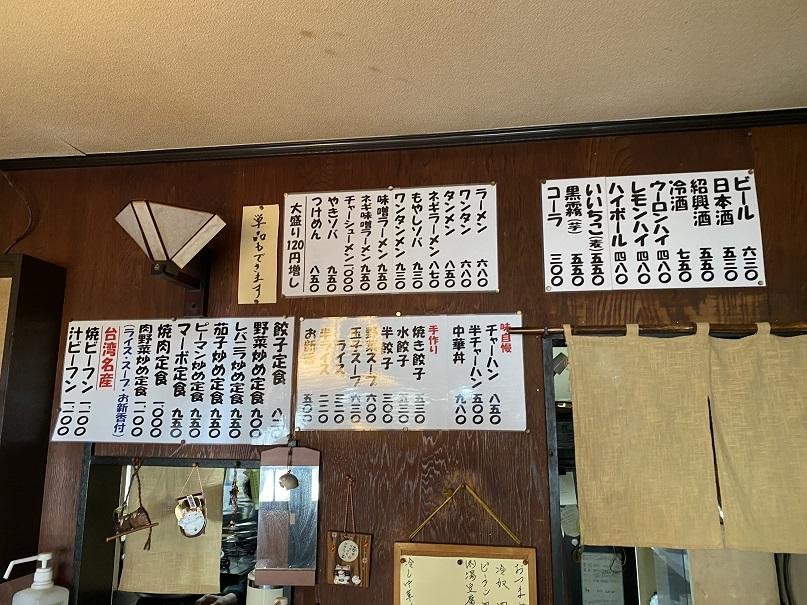 ビール 六三〇
日本酒 五三〇
紹興酒 五五〇
冷酒 七五〇
ウーロンハイ 四八〇
レモンハイ 四八〇
ハイボール 四八〇
いいちこ(麦) 五五〇
黒霧(芋) 五五〇
コーラ 三〇〇
ラーメン 六八〇
ワンタン 六八〇
タンメン 八五〇
ネギラーメン 八七〇
もやしソバ 九五〇
ワンタンメン 九三〇
味噌ラーメン 九五〇
ネギ味噌ラーメン 九五〇
チャーシューメン 一〇〇〇
やきソバ 九五〇
つけめん 八五〇
大盛り120円増し
単品もできます
味自慢
チャーハン 八五〇
半チャーハン 五〇〇
中華丼 九八〇
手作り
焼き餃子 五三〇
水餃子 五三〇
半餃子 三三〇
野菜スープ 六〇〇
玉子スープ 六三〇
ライス
半ライス 二〇〇
お新香 五〇〇
餃子定食
野菜炒め定食 九〇〇
レバニラ炒め定食 九五〇
茄子炒め定食 九五〇
ピーマン炒め定食 九五〇
マーボ定食 九五〇
焼肉定食 一〇〇〇
肉野菜炒め定食 一〇〇〇
(ライス・スープ お新香付)
台湾名産
焼ビーフン 一〇〇〇
汁ビーフン 一〇〇〇
冷奴